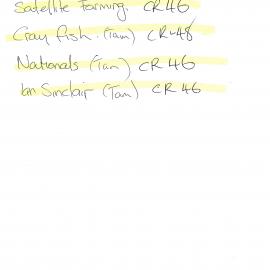 Satellite Farming. CR46
Cray fish. (Tam) CR48
Nationals (Tam) CR46
Ian Sinclair (Tam) CR46